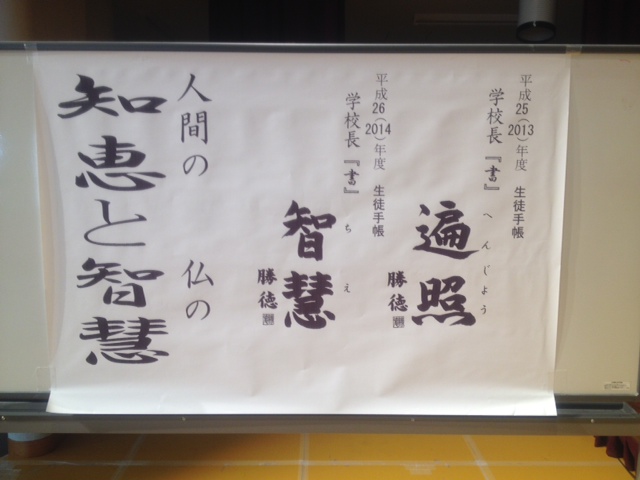 平成25(2013)年度 生徒手帳
学校長『書』
へんじょう
遍照
勝徳
平成26(2014)年度 生徒手帳
学校長『書』
ちえ
智慧
勝徳
人間の 仏の
知恵と智慧